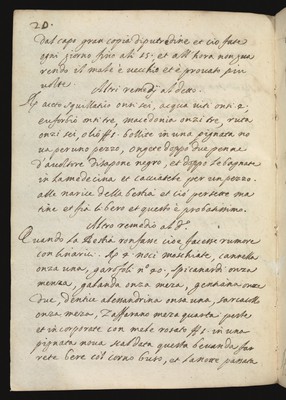 20.
dal capo gran copia di putredine et ciò fate
ogni giorno fino alli 15. et all'hora non gua
rendo il male è vecchio et è provato piu
volte.
Altri remedij al detto.
aceto onti sei, acqua vite onti 2.
euforbio onti tre, macedonia onzi tre, ruta
onzi sei, olio bollite in una pignata no
va per uno pezzo, ongere doppo due penne
d'avoltore di sapone negro, et doppo le bagnate
in la medecina et cacciatele per un pezzo
alle narice della bestia et ciò per sette ma
tine et sia libero et questo è probatissimo.
Altro remedio al d.º
Quando la bestia ronfasse cioè facesse rumore
con li narici. 2 noci moschiate, cannella
onza una, garofoli nº 90. spicanardi onza
menza, galanda onza meza, gentiana onze
due, dentice alessandrina onza una, sarcacolle
onza meza, Zaffarano meza quarta peste
et incorporate con mele rosato in una
pignata nova scaldata questa bevanda fa
rete bere col corno et la notte passata